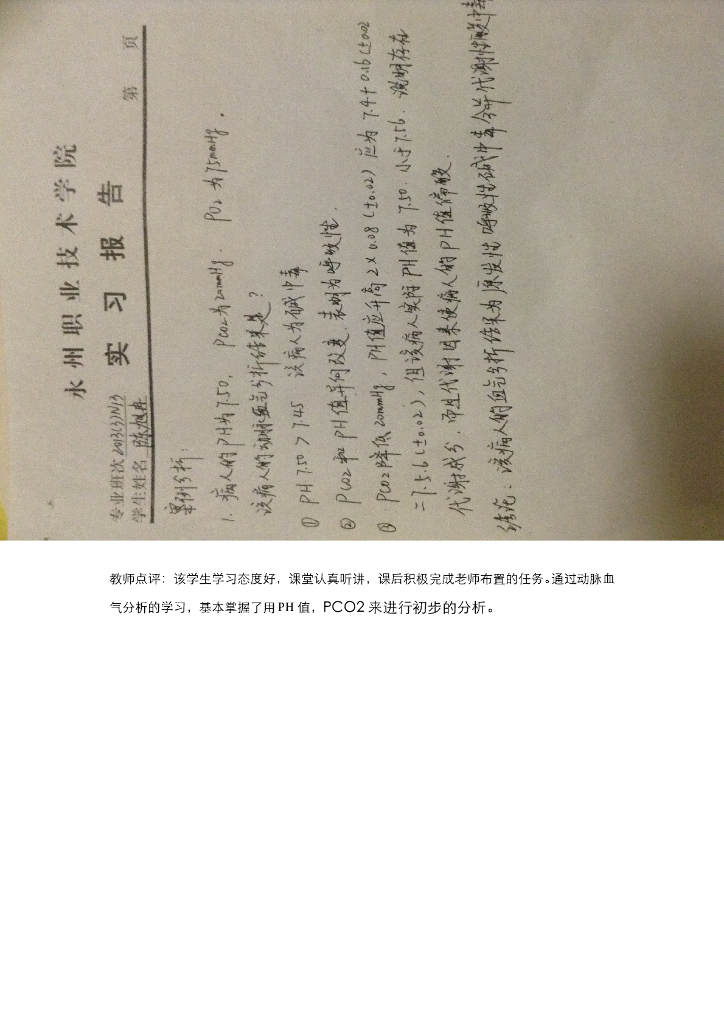 永州职业技术学院
实习报告
第 页
专业班次 2013(3)N13
学生姓名 陈旭冉
案例分析：
1. 病人的PH为7.50， PCO2为20mmHg． PO2 为75mmHg．
该病人的动脉血气分析结果是？
① PH 7.50 > 7.45 该病人为碱中毒
② PCO2 和 PH值异向改变．表明为呼吸性．
③ PCO2降低20mmHg，PH值应升高 2×0.08 (±0.02) 应为 7.4+0.16(±0.02
=7.5.6(±0.02)，但该病人实际PH值为 7.50．小于7.56．说明存在
代谢成分．而且代谢因素使病人的PH值偏酸．
结论：该病人的血气分析结果为原发性呼吸性碱中毒合并代谢性酸中毒
教师点评：该学生学习态度好，课堂认真听讲，课后积极完成老师布置的任务。通过动脉血
气分析的学习，基本掌握了用 PH 值，PCO2 来进行初步的分析。